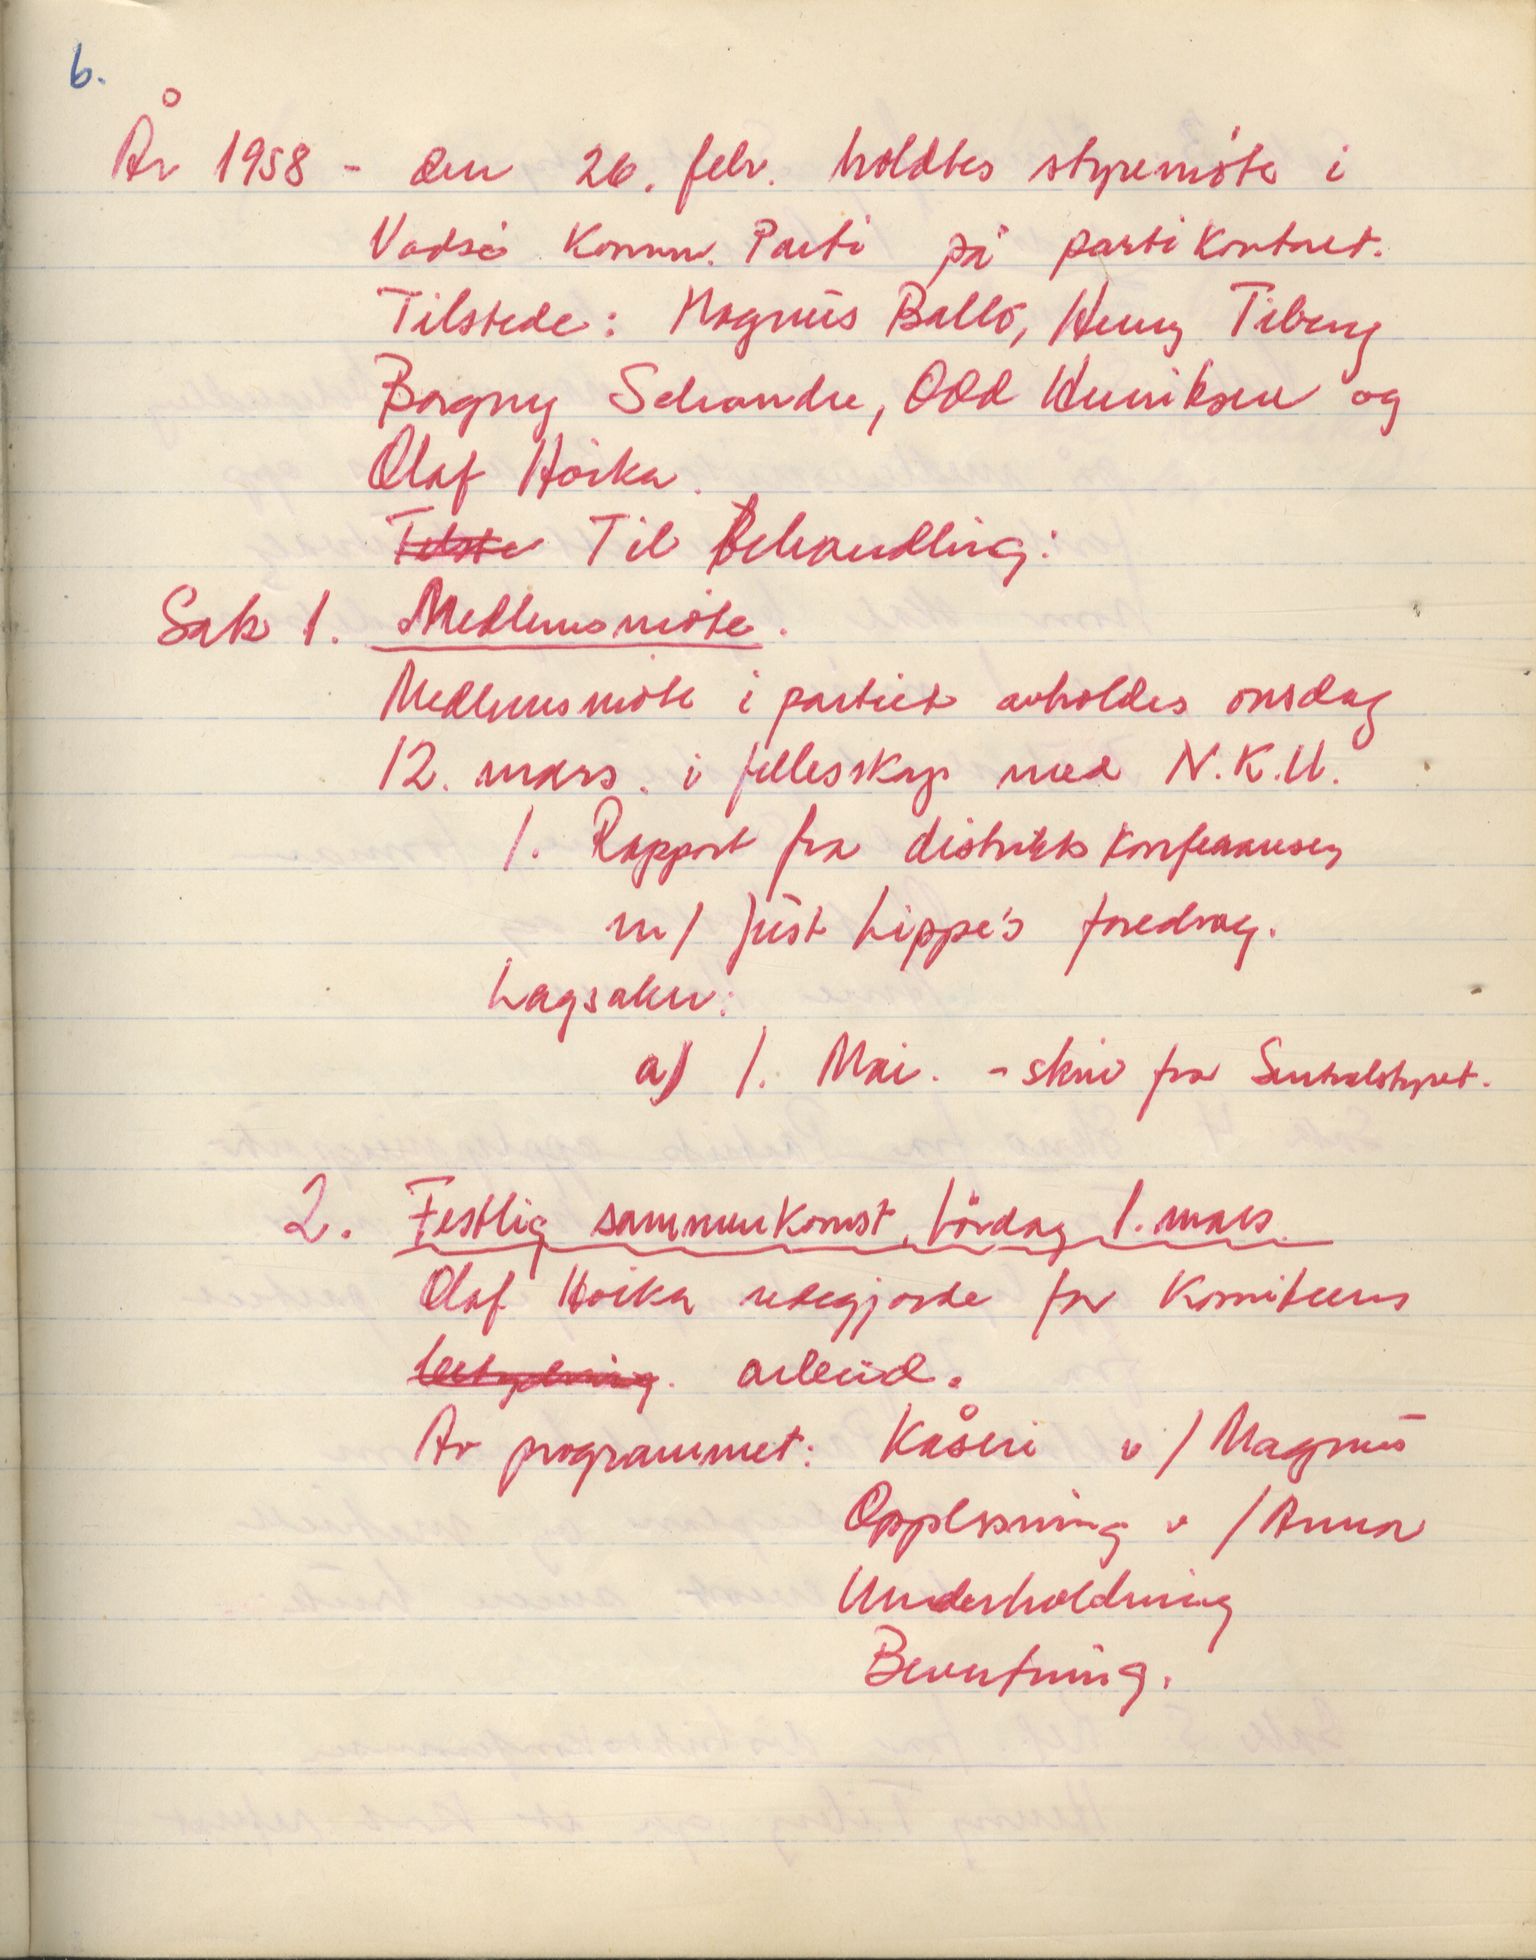 6.
År 1958 - den 26. febr. holdtes styremöte i
Vadsö Komm. Parti på partikontoret.
Tilstede: Magnus Ballo, Henry Tiberg
Borgny Schandre, Odd Henriksen og
Olaf Hoika.
Tilste Til Behandling:
Sak 1. Medlemsmöte.
Medlemsmöte i partiet avholdes onsdag
12. mars. i fellesskap med N.K.U.
1. Rapport fra distriktskonferansen
m/ Just Lippe's foredrag.
Lagsaker:
a) 1. Mai. - skriv fra Sentralstyret.
2. Festlig sammenkomst, lördag 1. mars.
Olaf Hoika redegjorde for komiteens
arbeid.
Av programmet: Kåseri v/Magnus
Opplesning v/Anna
Underholdning
Bevertning.